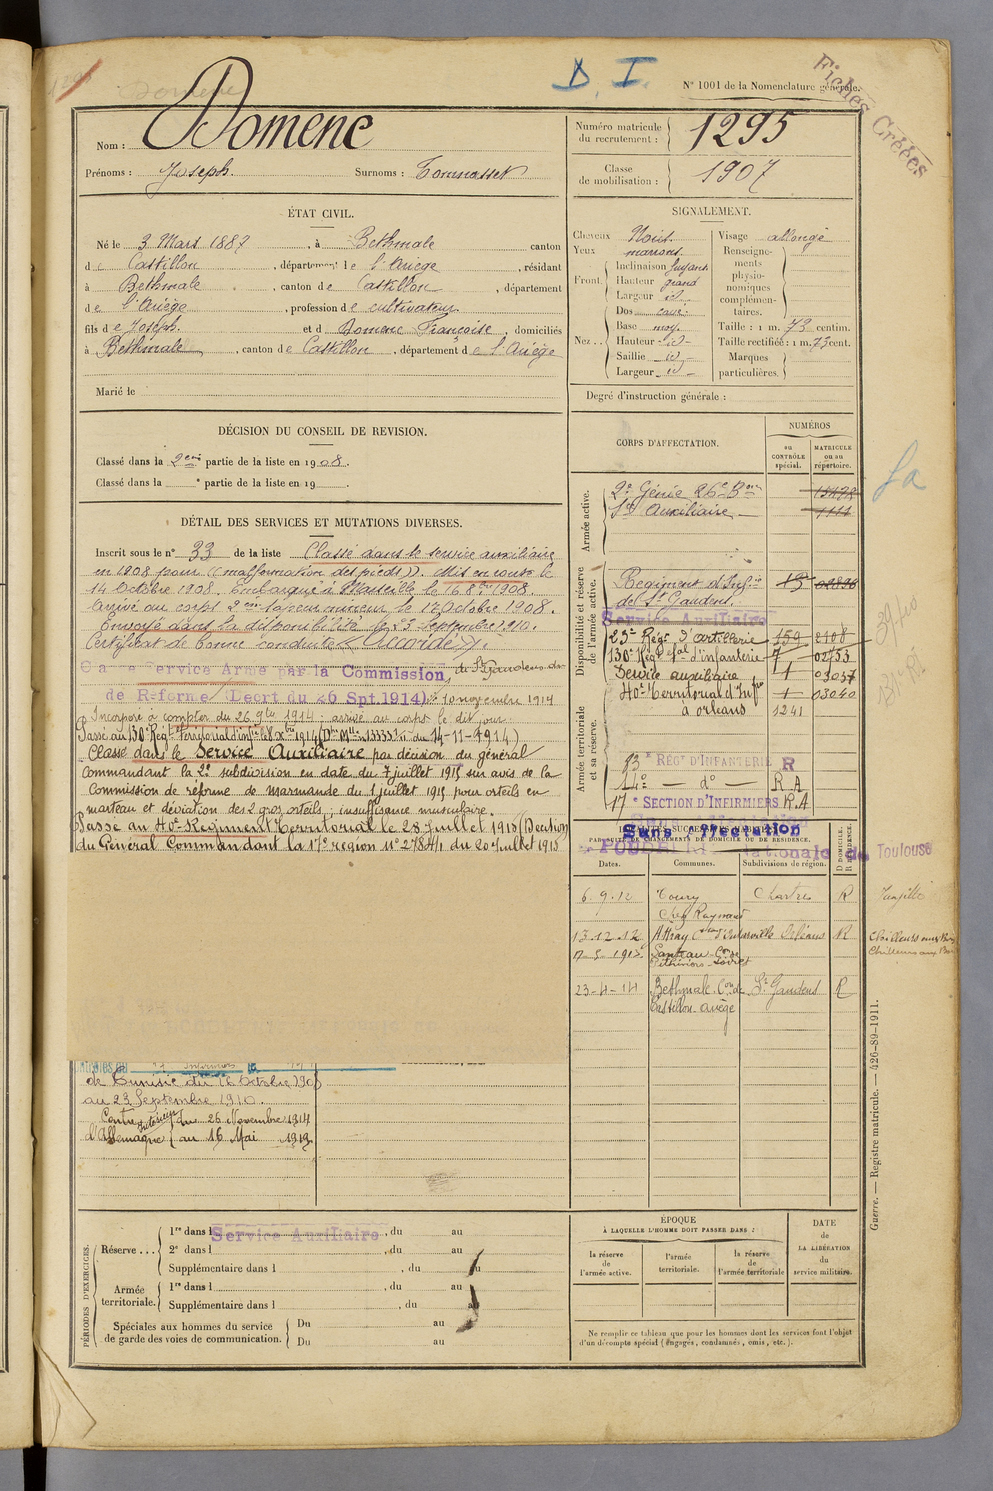 D. I.
N° 1001 de la Nomenclature générale.
Fiches Créées
Nom : Domenc
Prénoms : Joseph. Surnoms :
Numéro matricule du recrutement : 1295
Classe de mobilisation : 1907
ÉTAT CIVIL.
Né le 3 Mars 1887, à Bethmale canton
de Castillon, département de l'Ariège, résidant
à Bethmale, canton de Castillon, département
de l'Ariège, profession de cultivateur
fils de Joseph. et de Domenc Françoise, domiciliés
à Bethmale, canton de Castillon, département de l'Ariège
Marié le
SIGNALEMENT.
Cheveux Noirs
Yeux marrons.
Front. Inclinaison fuyant
Hauteur grand
Largeur id
Nez.. Dos cave.
Base moy.
Hauteur id
Saillie id
Largeur id
Visage allongé
Renseignements physionomiques complémentaires.
Taille : 1 m. 73 centim.
Taille rectifiée : 1 m. 73 cent.
Marques particulières.
Degré d'instruction générale :
DÉCISION DU CONSEIL DE REVISION.
Classé dans la 2eme partie de la liste en 1908.
Classé dans la e partie de la liste en 19
DÉTAIL DES SERVICES ET MUTATIONS DIVERSES.
Inscrit sous le n° 33 de la liste Classé dans le service auxiliaire
en 1908 pour ((malformation des pieds)). Mis en route le
14 Octobre 1908. Embarqué à Marseille le 16 8bre 1908.
Arrivé au corps 2eme sapeur mineur le 17 Octobre 1908.
Envoyé dans la disponibilité le 23 Septembre 1910.
Certificat de bonne conduite « Accordé ».
Service Armé par la Commission de St Gaudens
de Réforme (Decrt du 26 Spt. 1914) 10 novembre 1914
Incorporé à compter du 26 9bre 1914 : arrivé au corps le dit jour.
Passé au 130e Régt Territorial d'infie le 8 Xbre 1914 (Don Mlle n° 13333 du 14-11-1914)
Classé dans le Service Auxiliaire par décision du général
commandant la 2e subdivision en date du 7 juillet 1915 sur avis de la
Commission de réforme de Marmande du 1 juillet 1915 pour orteils en
marteau et déviation des 2 gros orteils ; insuffisance musculaire.
Passé au 40e Régiment Territorial le 28 Juillet 1915 (Decision
du Général Commandant la 17e région n° 278 A/1 du 20 Juillet 1915
de Tunisie du 16 Octobre 1908
au 23 Septembre 1910.
Contre l'Allemagne Intérieur du 26 Novembre 1914
au 16 Mai 1919
CORPS D'AFFECTATION.
NUMÉROS
au CONTRÔLE spécial.
MATRICULE ou au répertoire.
Armée active.
2e Génie 26e Bon 15472
Son Auxiliaire 1111
Disponibilité et réserve de l'armée active.
Régiment d'Infie
de St Gaudens.
Service Auxiliaire
23e Régt d'artillerie 159 2108
130e Régt tal d'infanterie 7 02753
Service auxiliaire 1 03037
40e Territorial d'Infie 1 03040
à orléans 1241
Armée territoriale et sa réserve.
83e RÉGt D'INFANTERIE R
14e — do — R A
17e SECTION D'INFIRMIERS R.A
Sans affectation
POUDRERIE Nationale de Toulouse
PAR SUITE DE CHANGEMENTS DE DOMICILE OU DE RÉSIDENCE.
Dates.
Communes.
Subdivisions de région.
D DOMICILE.
R RÉSIDENCE.
6.9.12 Toury Chartres R
Chez Raymond
13.12.12 Attray Orléans R
Chilleurs aux Bois
17-5-1913 Santeau Con de
Pithiviers-Loiret
Chilleurs aux Bois
23-4-14 Bethmale. Con de St Gaudens R
Castillon-ariège
Guerre. — Registre matricule. — 426-89-1911.
PÉRIODES D'EXERCICES.
Réserve... 1re dans l Service Auxiliaire, du au
2e dans l , du au
Supplémentaire dans l , du au
Armée territoriale. 1re dans l , du au
Supplémentaire dans l , du au
Spéciales aux hommes du service de garde des voies de communication. Du au
Du au
ÉPOQUE
À LAQUELLE L'HOMME DOIT PASSER DANS :
la réserve de l'armée active.
l'armée territoriale.
la réserve de l'armée territoriale
DATE de LA LIBÉRATION du service militaire.
Ne remplir ce tableau que pour les hommes dont les services font l'objet
d'un décompte spécial (engagés, condamnés, omis, etc.).